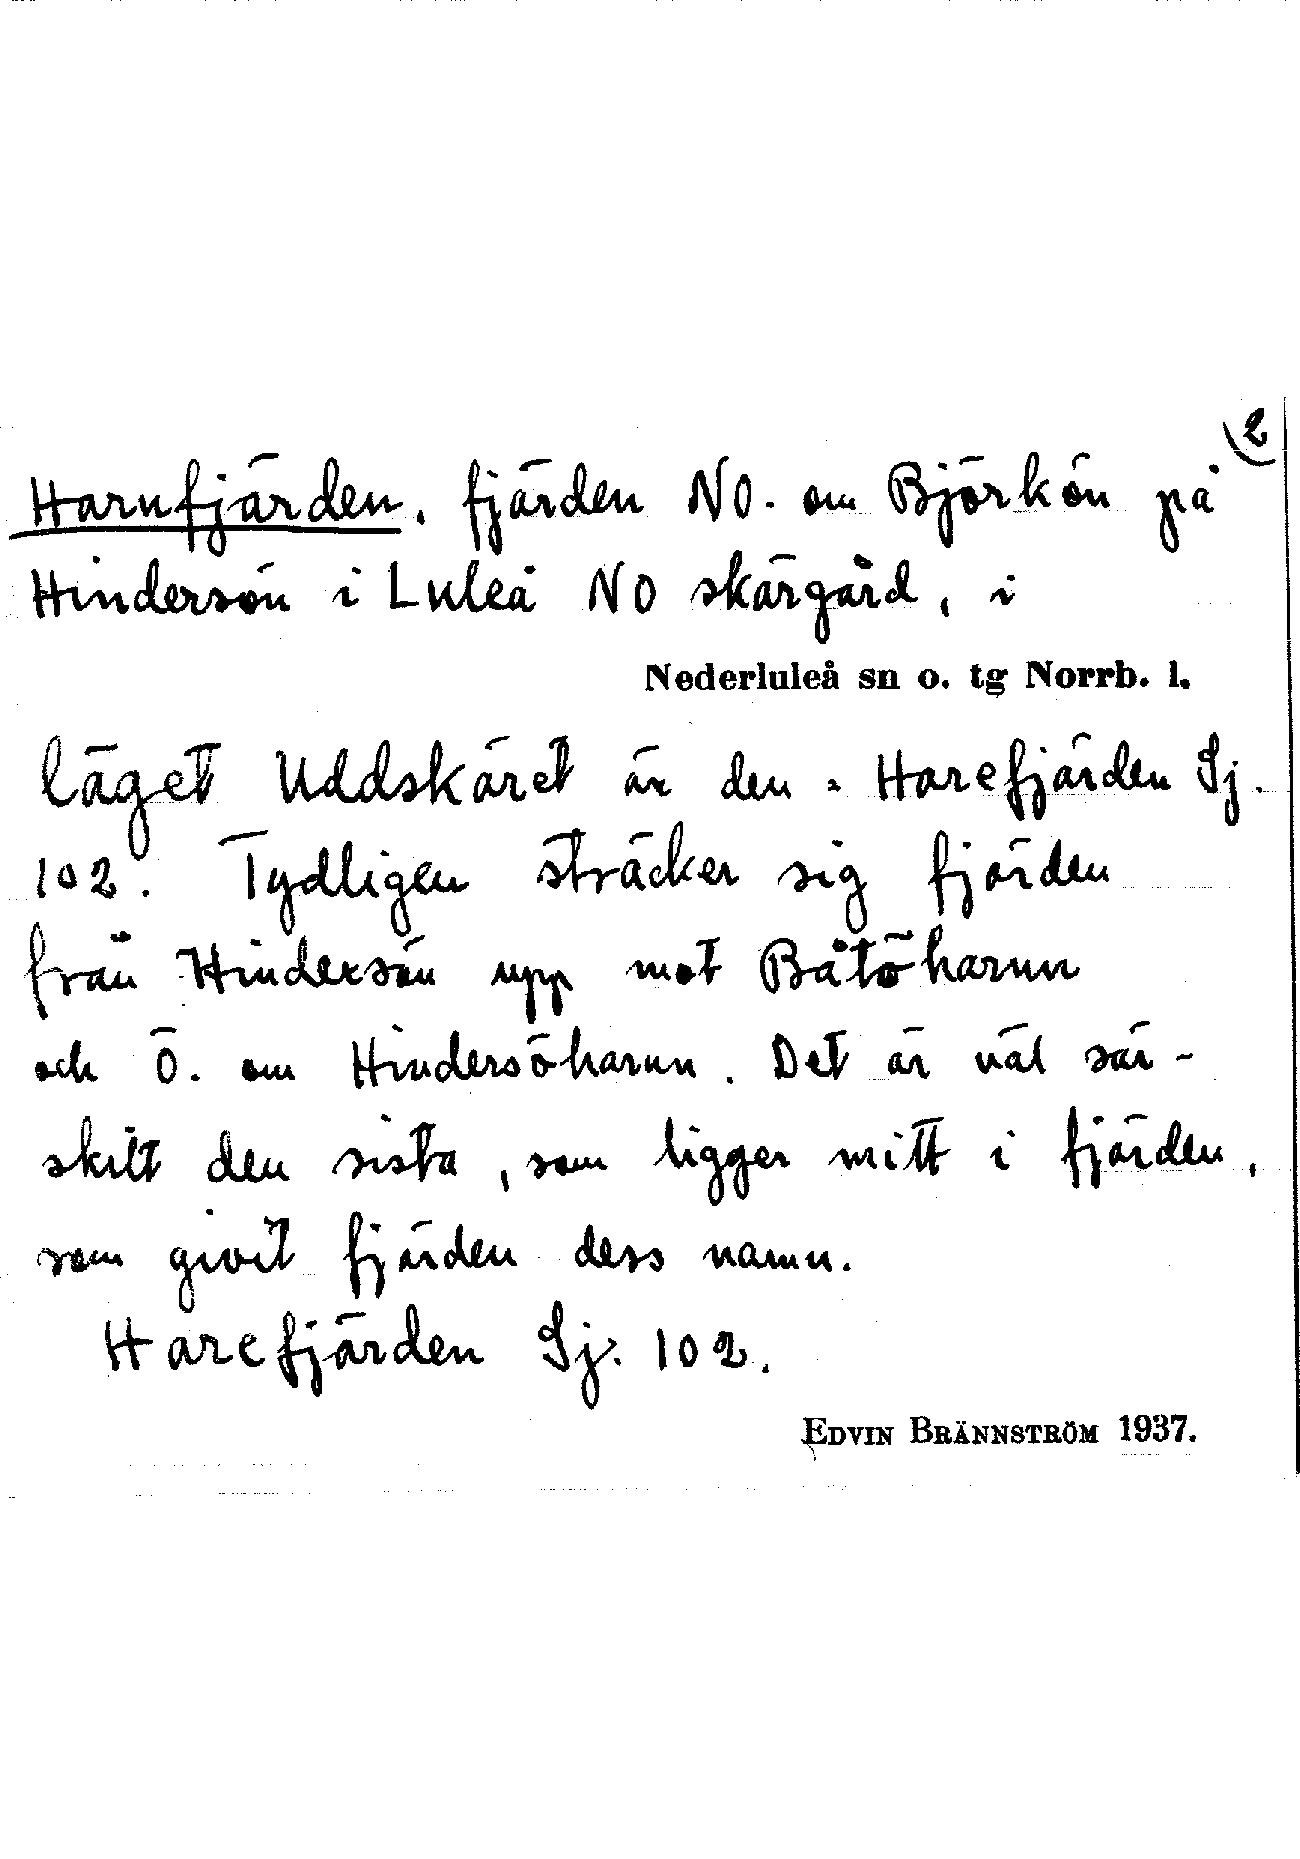 2
Harufjärden, fjärden NO. om Björkön på
Hindersön i Luleå NO skärgård, i
Nederluleå sn o. tg Norrb. l.
läget Uddskäret är den = Harefjärden Sj.
102. Tydligen sträcker sig fjärden
från Hindersön upp mot Båtöharun
och Ö. om Hindersöharun. Det är väl sär-
skilt den sista, som ligger mitt i fjärden,
som givit fjärden dess namn.
Harefjärden Sj. 102.
EDVIN BRÄNNSTRÖM 1937.